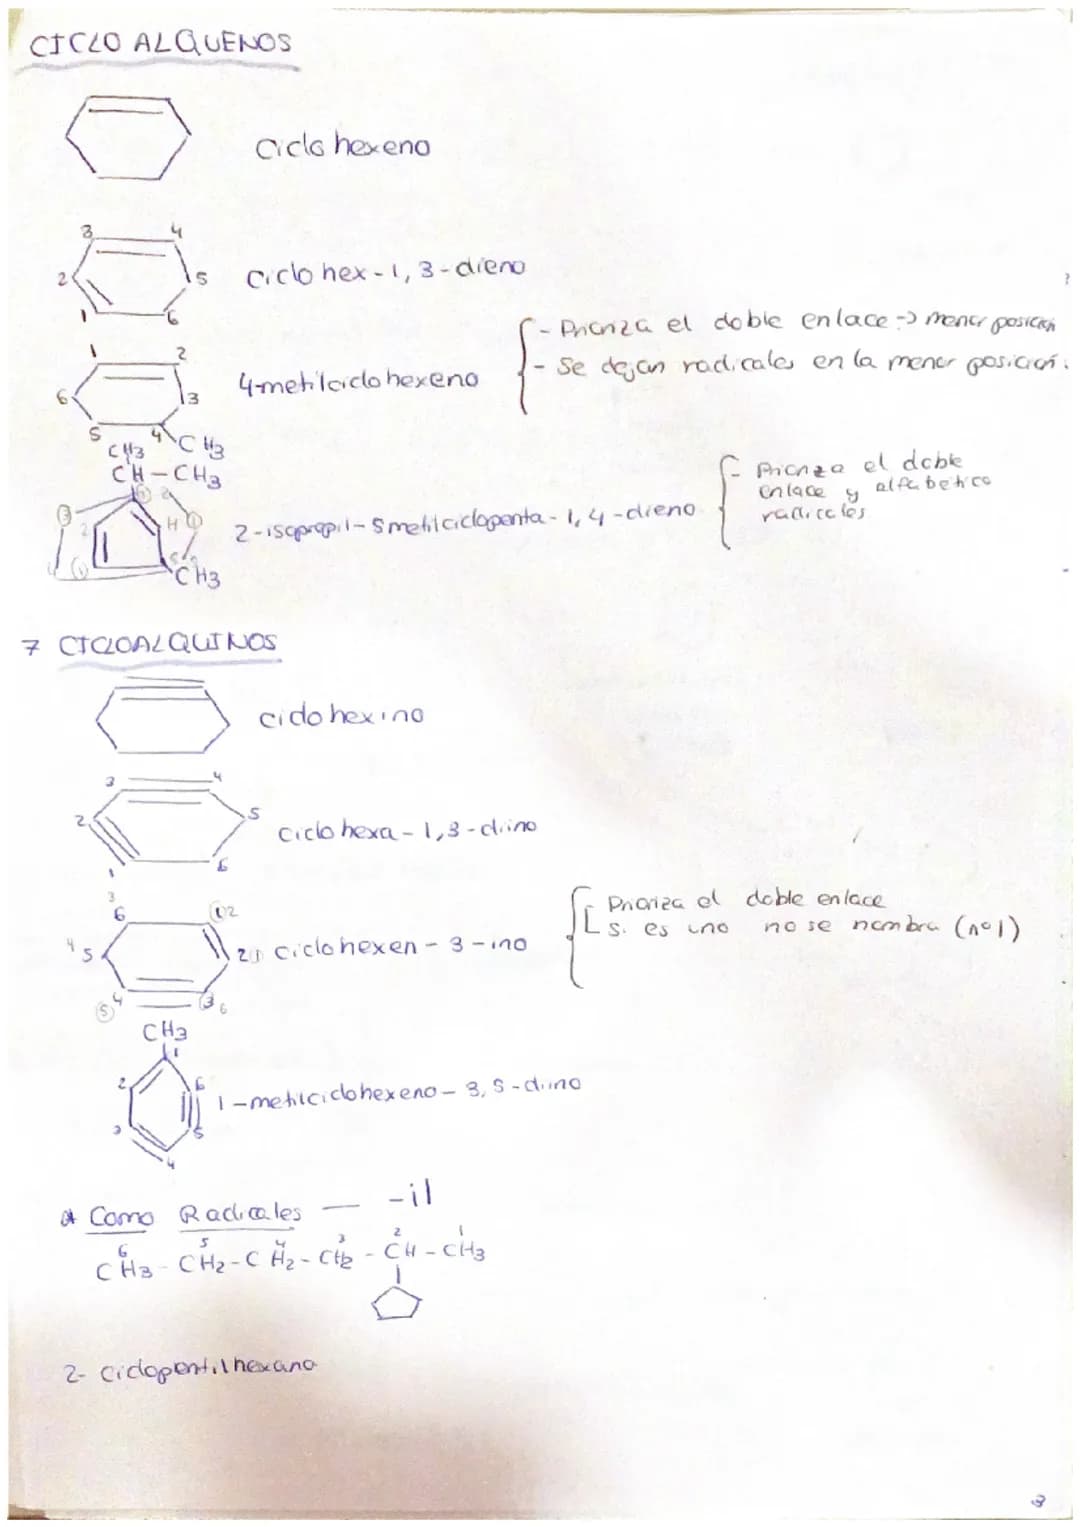 CICLO ALQUENOS
Ciclo hexeno
3 4
2 5
1 6
Ciclo hex-1, 3-dieno
- Prioriza el doble enlace -> menor posición
- Se dejan radicales en la menor posición.
1 2
6 3
5 4 CH3
4-metilciclohexeno
CH3
CH-CH3
CH3
2-isopropil-5metilciclopenta-1,4-dieno
- Prioriza el doble
enlace y alfabético
radicales
7 CICLOALQUINOS
ciclohexino
3 4
2 5
1 6
Ciclo hexa-1,3-diino
3
6 1 2
4 5 2 1
5 4 3 6
Ciclohexen-3-ino
- Prioriza el doble enlace
si es uno no se nombra (nº1)
CH3
1
2 6
3 5
4
1-metilciclohexeno-3,5-diino
* Como Radicales — -il
6 5 4 3 2 1
CH3-CH2-CH2-CH2-CH-CH3
2-ciclopentilhexano
3